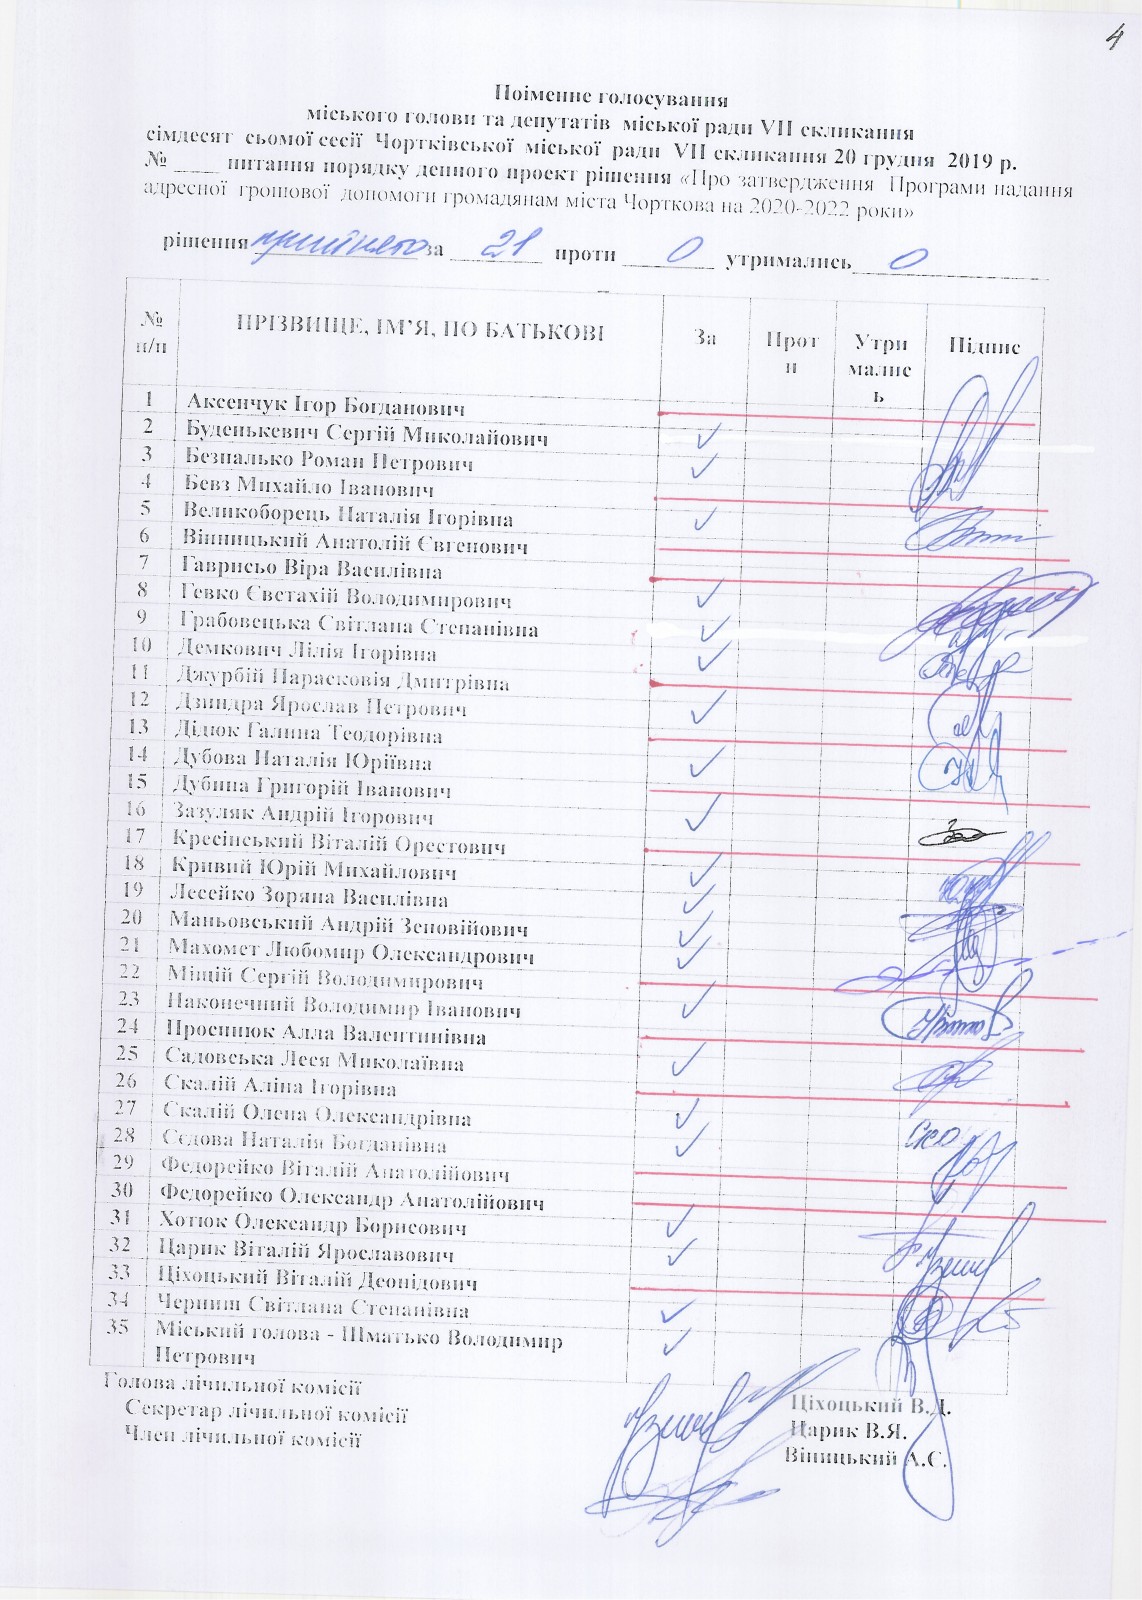 4
Поіменне голосування
міського голови та депутатів міської ради VII скликання
сімдесят сьомої сесії Чортківської міської ради VII скликання 20 грудня 2019 р.
№ ____ питання порядку денного проект рішення «Про затвердження Програми надання
адресної грошової допомоги громадянам міста Чорткова на 2020-2022 роки»
рішення прийнято за 21 проти 0 утримались 0
№ п/п ПРІЗВИЩЕ, ІМ’Я, ПО БАТЬКОВІ За Проти Утрималисьь Підпис
1 Аксенчук Ігор Богданович
2 Буденькевич Сергій Миколайович ✓
3 Безпалько Роман Петрович ✓
4 Бевз Михайло Іванович
5 Великоборець Наталія Ігорівна ✓
6 Вінницький Анатолій Євгенович
7 Гаврисьо Віра Василівна
8 Гевко Євстахій Володимирович ✓
9 Грабовецька Світлана Степанівна ✓
10 Демкович Лілія Ігорівна ✓
11 Джурбій Парасковія Дмитрівна
12 Дзиндра Ярослав Петрович ✓
13 Дідюк Галина Теодорівна
14 Дубова Наталія Юріївна ✓
15 Дубина Григорій Іванович
16 Зазуляк Андрій Ігорович ✓
17 Кресінський Віталій Орестович
18 Кривий Юрій Михайлович ✓
19 Лесейко Зоряна Василівна ✓
20 Маньовський Андрій Зеновійович ✓
21 Махомет Любомир Олександрович ✓
22 Міщій Сергій Володимирович
23 Наконечний Володимир Іванович ✓
24 Проснюк Алла Валентинівна
25 Садовська Леся Миколаївна ✓
26 Скалій Аліна Ігорівна
27 Скалій Олена Олександрівна ✓
28 Сєдова Наталія Богданівна ✓
29 Федорейко Віталій Анатолійович
30 Федорейко Олександр Анатолійович
31 Хотюк Олександр Борисович ✓
32 Царик Віталій Ярославович ✓
33 Ціхоцький Віталій Леонідович
34 Черниш Світлана Степанівна ✓
35 Міський голова - Шматько Володимир ✓
Петрович
Голова лічильної комісії Ціхоцький В.Л.
Секретар лічильної комісії Царик В.Я.
Член лічильної комісії Віницький А.Є.